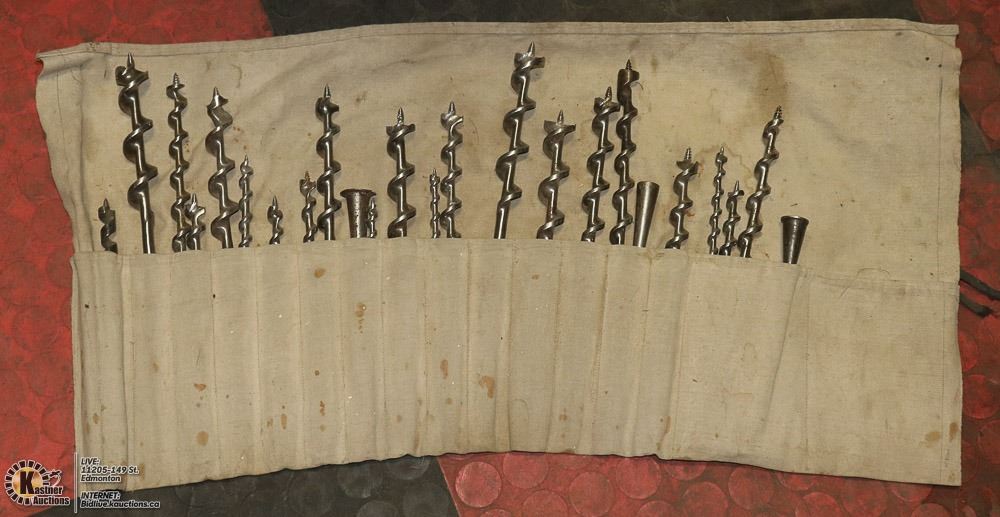 Kastner
Auctions
LIVE:
11205-149 St.
Edmonton
INTERNET:
Bidlive.kauctions.ca